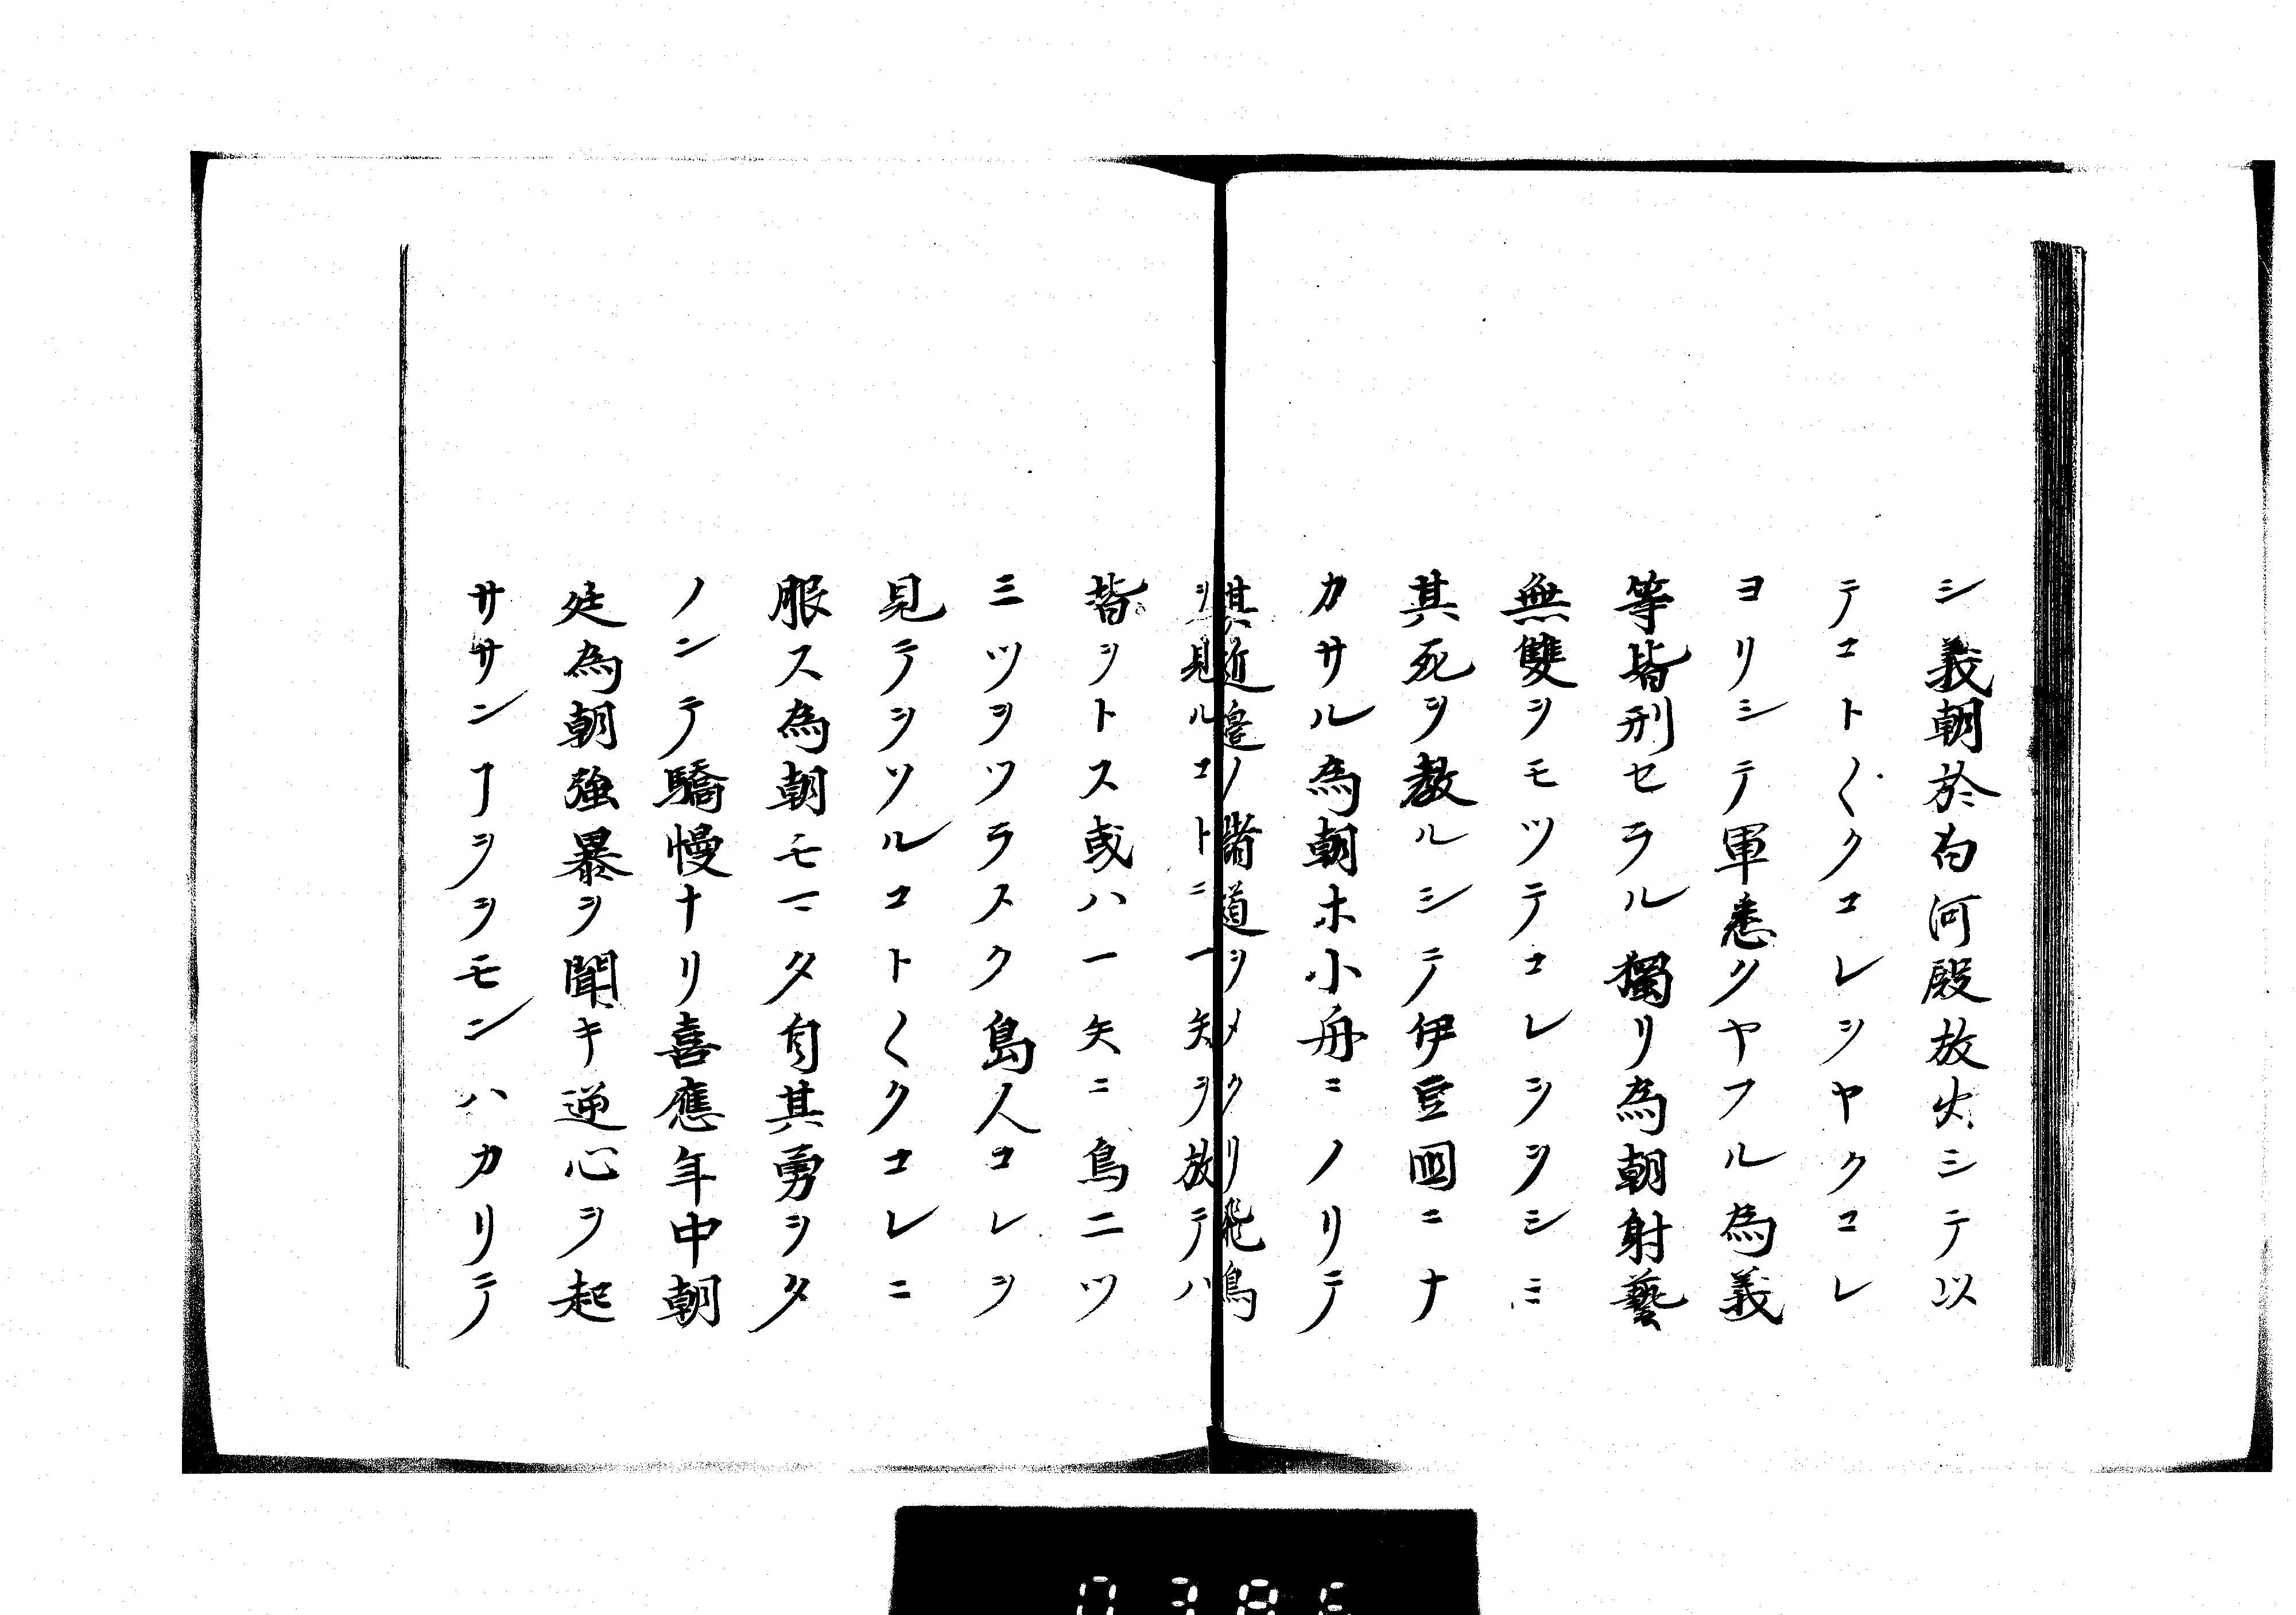 シ義朝於白河殿放火シテ以
テコト〳〵クコレヲヤクコレ
ヨリシテ軍悉クヤフル為義
等皆刑セラル獨リ為朝射藝
無雙ヲモツテコレヲヲシミ
其死ヲ赦ルシテ伊豆國ニナ
カサル為朝ホ小舟ニノリテ
其近邉ノ諸道ヲメクリ飛鳥
ヲ見ルコトニ一矢ヲ放テハ
皆ヲトス或ハ一矢ニ鳥二ツ
三ツヲツラスク島人コレヲ
見テヲソルコト〳〵クコレニ
服ス為朝モマタ自其勇ヲタ
ノンテ驕慢ナリ喜應年中朝
廷為朝強暴ヲ聞キ逆心ヲ起
ササンヿヲヲモンハカリテ